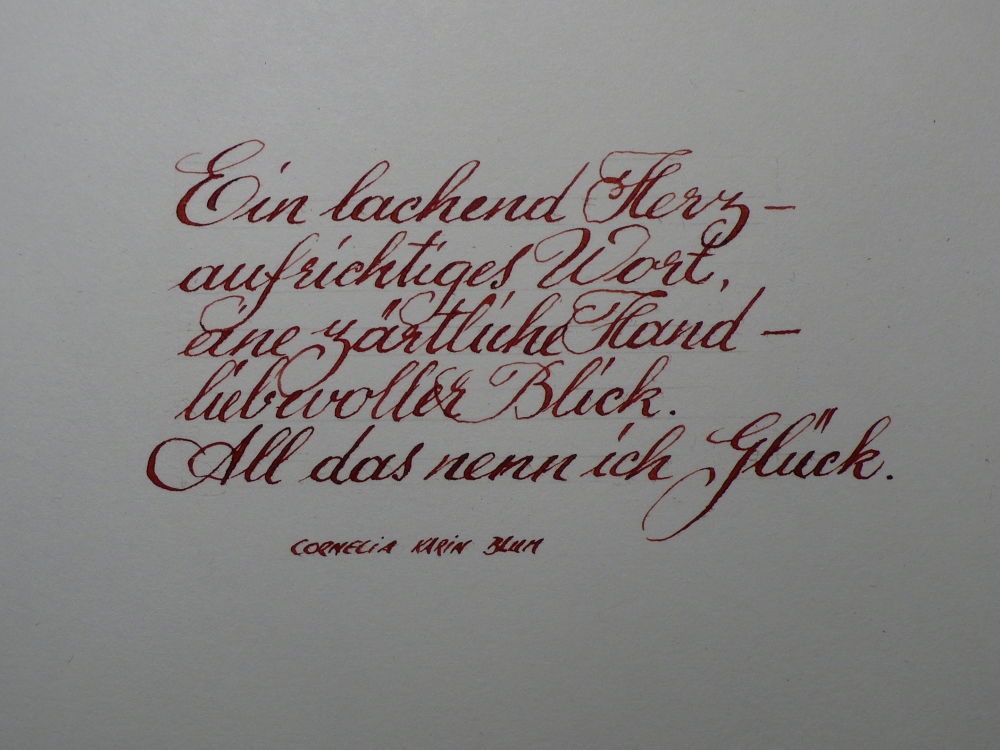 Ein lachend Herz –
aufrichtiges Wort,
eine zärtliche Hand –
liebevoller Blick.
All das nenn ich Glück.
CORNELIA KARIN BLUM